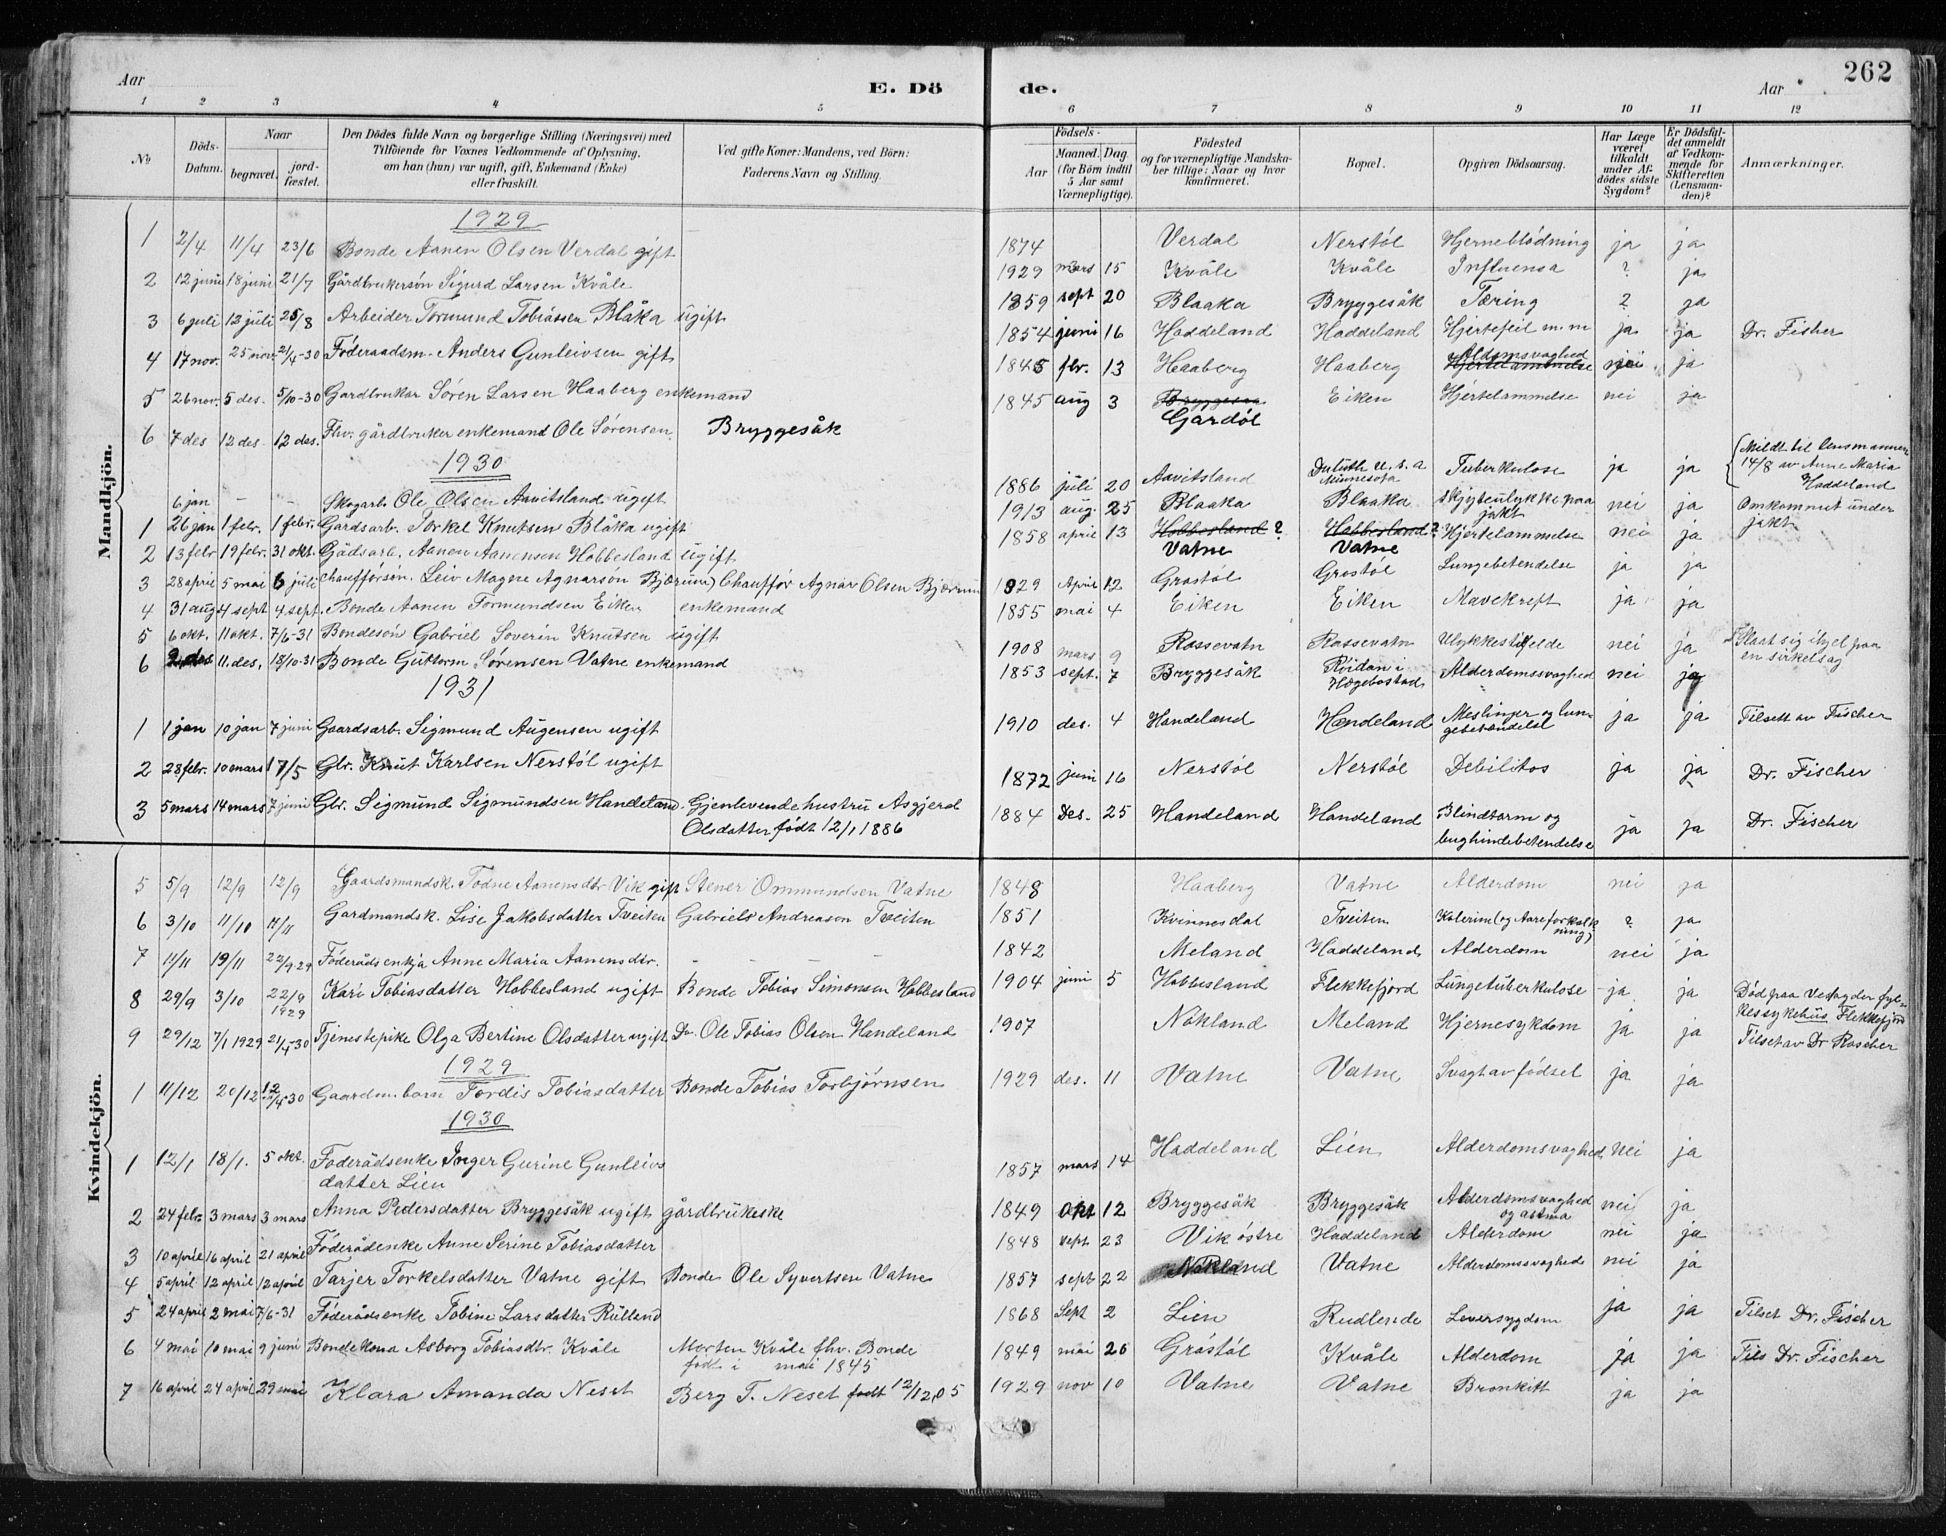 Aar
E. Dö
de.
Aar
262
1 2 3 4 5 6 7 8 9 10 11 12
№
Döds-
Datum.
Naar
begravet.
jord-
fæstet.
Den Dödes fulde Navn og borgerlige Stilling (Næringsvei) med
Tilföiende for Voxnes Vedkommende af Oplysning.
om han (hun) var ugift, gift, Enkemand (Enke)
eller fraskilt.
Ved gifte Koner: Mandens, ved Börn:
Faderens Navn og Stilling.
Födsels-
Aar
Maaned. Dag
(for Börn indtil
5 Aar samt
Værnepligtige).
Födested
og for værnepligtige Mandska-
ber tillige: Naar og hvor
konfirmeret.
Bopæl.
Opgiven Dödsaarsag.
Har Læge
været
tilkaldt
under Af-
dödes sidste
Sygdom?
Er Dödsfal-
det anmeldt
af Vedkom-
mende for
Skifteretten
(Lensman-
den)?
Anmærkninger.
Mandkjön.
1929
1 2/4 11/4 23/6 Bonde Aanen Olsen Verdal gift 1874 Verdal Nerstöl Hjerneblödning ja ja
2 12 juni 18 juni 21/7 Gårdbrukersön Sigurd Larsen Kvåle 1929 mars 15 Kvåle Kvåle Influensa ? ja
3 6 juli 12 juli 25/8 Arbeider Tormund Tobiassen Blåka ugift 1859 sept 20 Blaaka Bryggesåk Tæring ? ja
4 17 nov. 25 nov. 21/4-30 Föderaadsm. Anders Gunleivsen gift 1854 juni 16 Haddeland Haddeland Hjertefeil m.m ja ja Dr. Fisher
5 26 nov. 5 des. 5/10-30 Gardbruker Sören Larsen Haaberg enkemand 1845 fbr. 13 Haaberg Haaberg Aldomsvaghed Hjertelammelse nei ja
6 7 des 12 des. 12 des. Fhv. gårdbruker enkemand Ole Sörensen Bryggesåk 1845 aug 3 Bryggesaa Gardöl Eiken Hjertelammelse nei ja
1930
6 jan - - Skogarb. Ole Olsen Aavitsland ugift 1886 juli 20 Aavitsland Duluth U.S.A Minnesota Tuberkulose ja ja Mildt til lensmannen 14/8 av Anne Maria Haddeland
1 26 jan 1 febr. 1 febr. Gårdsarb. Torkel Knutsen Blåka ugift 1913 aug. 25 Blaaka Blaaka skjyteulykke paa jakt nei ja Omkommet under jakt
2 13 febr 19 febr. 31 okt. Gådsarb. Aanen Aanensen Hobbesland ugift 1858 april 13 Hobbesland? Vatne Hobbesland? Vatne Hjertelammelse nei ja
3 28 april 5 mai 6 juli chaufförsön. Leiv Magne Agnarsön Bjærum) Chaufför Agnar Olsen Bjærum 1929 April 12 Grostöl Grostöl Lungebetendelse ja ja
4 31 aug 4 sept 4 sept. Bonde Aanen Tormundsen Eiken enkemand 1855 mai 4 Eiken Eiken Mavekreft ja ja
5 6 okt. 11 okt. 7/6-31 Bondesön Gabriel Soverin Knutsen ugift 1908 mars 9 Rossevatn Rossevatn Ulykkestilfelde nei ja Slaat sig ihjel paa en sirkelsag
6 2 des 11. des, 18/10-31 Bonde Guttorm Sörensen Vatne enkemand 1853 sept. 7 Bryggesåk Röidan i Hægebostad Alderdomssvaghed nei ja
1931
1 1 jan 10 jan 7 juni Gaardsarb. Sigmund Augensen ugift 1910 des. 4 Handeland Handeland Meslinger og lungebetændelse ja ja Tilsett av Fischer
2 28 febr. 10 mars 17/5 Gbr. Knut Karlsen Nerstöl ugift 1872 juni 16 Nerstöl Nerstöl Debilitos ja ja Dr. Fischer
3 5 mars 14 mars 7 juni Gbr. Sigmund Sigmundsen Handeland. Gjenlevende hustru Asgjerd 1884 Des. 25 Handeland Handeland Blindtarm og ja ja Dr. Fischer
Olsdatter födt 12/1 1886 bughindebetendelse
Kvindekjön.
5 5/9 12/9 12/9 Gaardsmandsk. Todne Aanensdtr Vik gift Stener Ommundsen Vatne 1848 Haaberg Vatne Alderdom nei ja
6 3/10 11/10 11/11 Gardmandsk. Lise Jakobsdatter Tveiten Gabriels Andreason Tveiten 1851 Kvinnesdal Tveiten Katerine (og Aareforkalkning) ? ja
7 11/11 19/11 22/9 29 Föderådsenkja Anne Maria Aanensdtr. - - - 1842 Meland Haddeland Alderdom nei ja
8 29/9 3/10 22/9 1929 Kari Tobiasdatter Hobbesland ugift Bonde Tobias Simonsen Hobbesland 1904 juni 5 Hobbesland Flekkefjord Lungetuberkulose ja ja Död paa Vestagder fylkessykehus Flekkefjord
9 29/12 7/1 1929 21/4 30 Tjenestepike Olga Bertine Olsdatter ugift Do Ole Tobias Olsen Handeland 1907 Nokland Meland Hjernesykdom ja ja Tilset av Dr Roscher
1929
1 11/12 20/12 12/4 30 Gaardm.barn Tordis Tobiasdatter Bonde Tobias Torbjörnsen 1929 des. 11 Vatne Vatne Svagt av födsel ja ja
1930
1 12/1 18/1. 5 okt. Föderådsenke Inger Gurine Gunleivs 1857 mars 14 Haddeland Lien Alderdomsvaghed nei ja
datter Lien
2 24 febr. 3 mars 3 mars Anna Pedersdatter Bryggesåk ugift gårdbrukeske 1849 Okt 12 Bryggesåk Bryggesåk Alderdomsvaghed og astma nei ja
3 10 april 16 april 21 april Föderådenke Anne Serine Tobiasdatter 1848 sept 23 Vik östre Haddeland Alderdom nei ja
4 5 april 12 april 12 april Tarjer Torkelsdatter Vatne gift Bonde Ole Syvertsen Vatne 1857 sept 22 Nokland Vatne Alderdomssvaghed nei ja
5 24 april 2 mai 7/6-31 Föderådsenke Tobine Larsdatter Rulland 1868 Sept 2 Lien Rudlende Leversygdom ja ja Tilset Dr. Fischer
6 4 mai 10 mai 9 juni Bondekona Asborg Tobiasdtr. Kvåle Morten Kvåle fhv. Bonde 1849 mai 20 Gröstöl Kvåle Alderdom ja ja Tils Dr. Fischer
födt i mai 1845
7 16 april 24 april 29 mai Klara Amanda Neset Berg T. Neset födt 12/12 05 1929 nov 10 Vatne Vatne Bronkitt ja ja